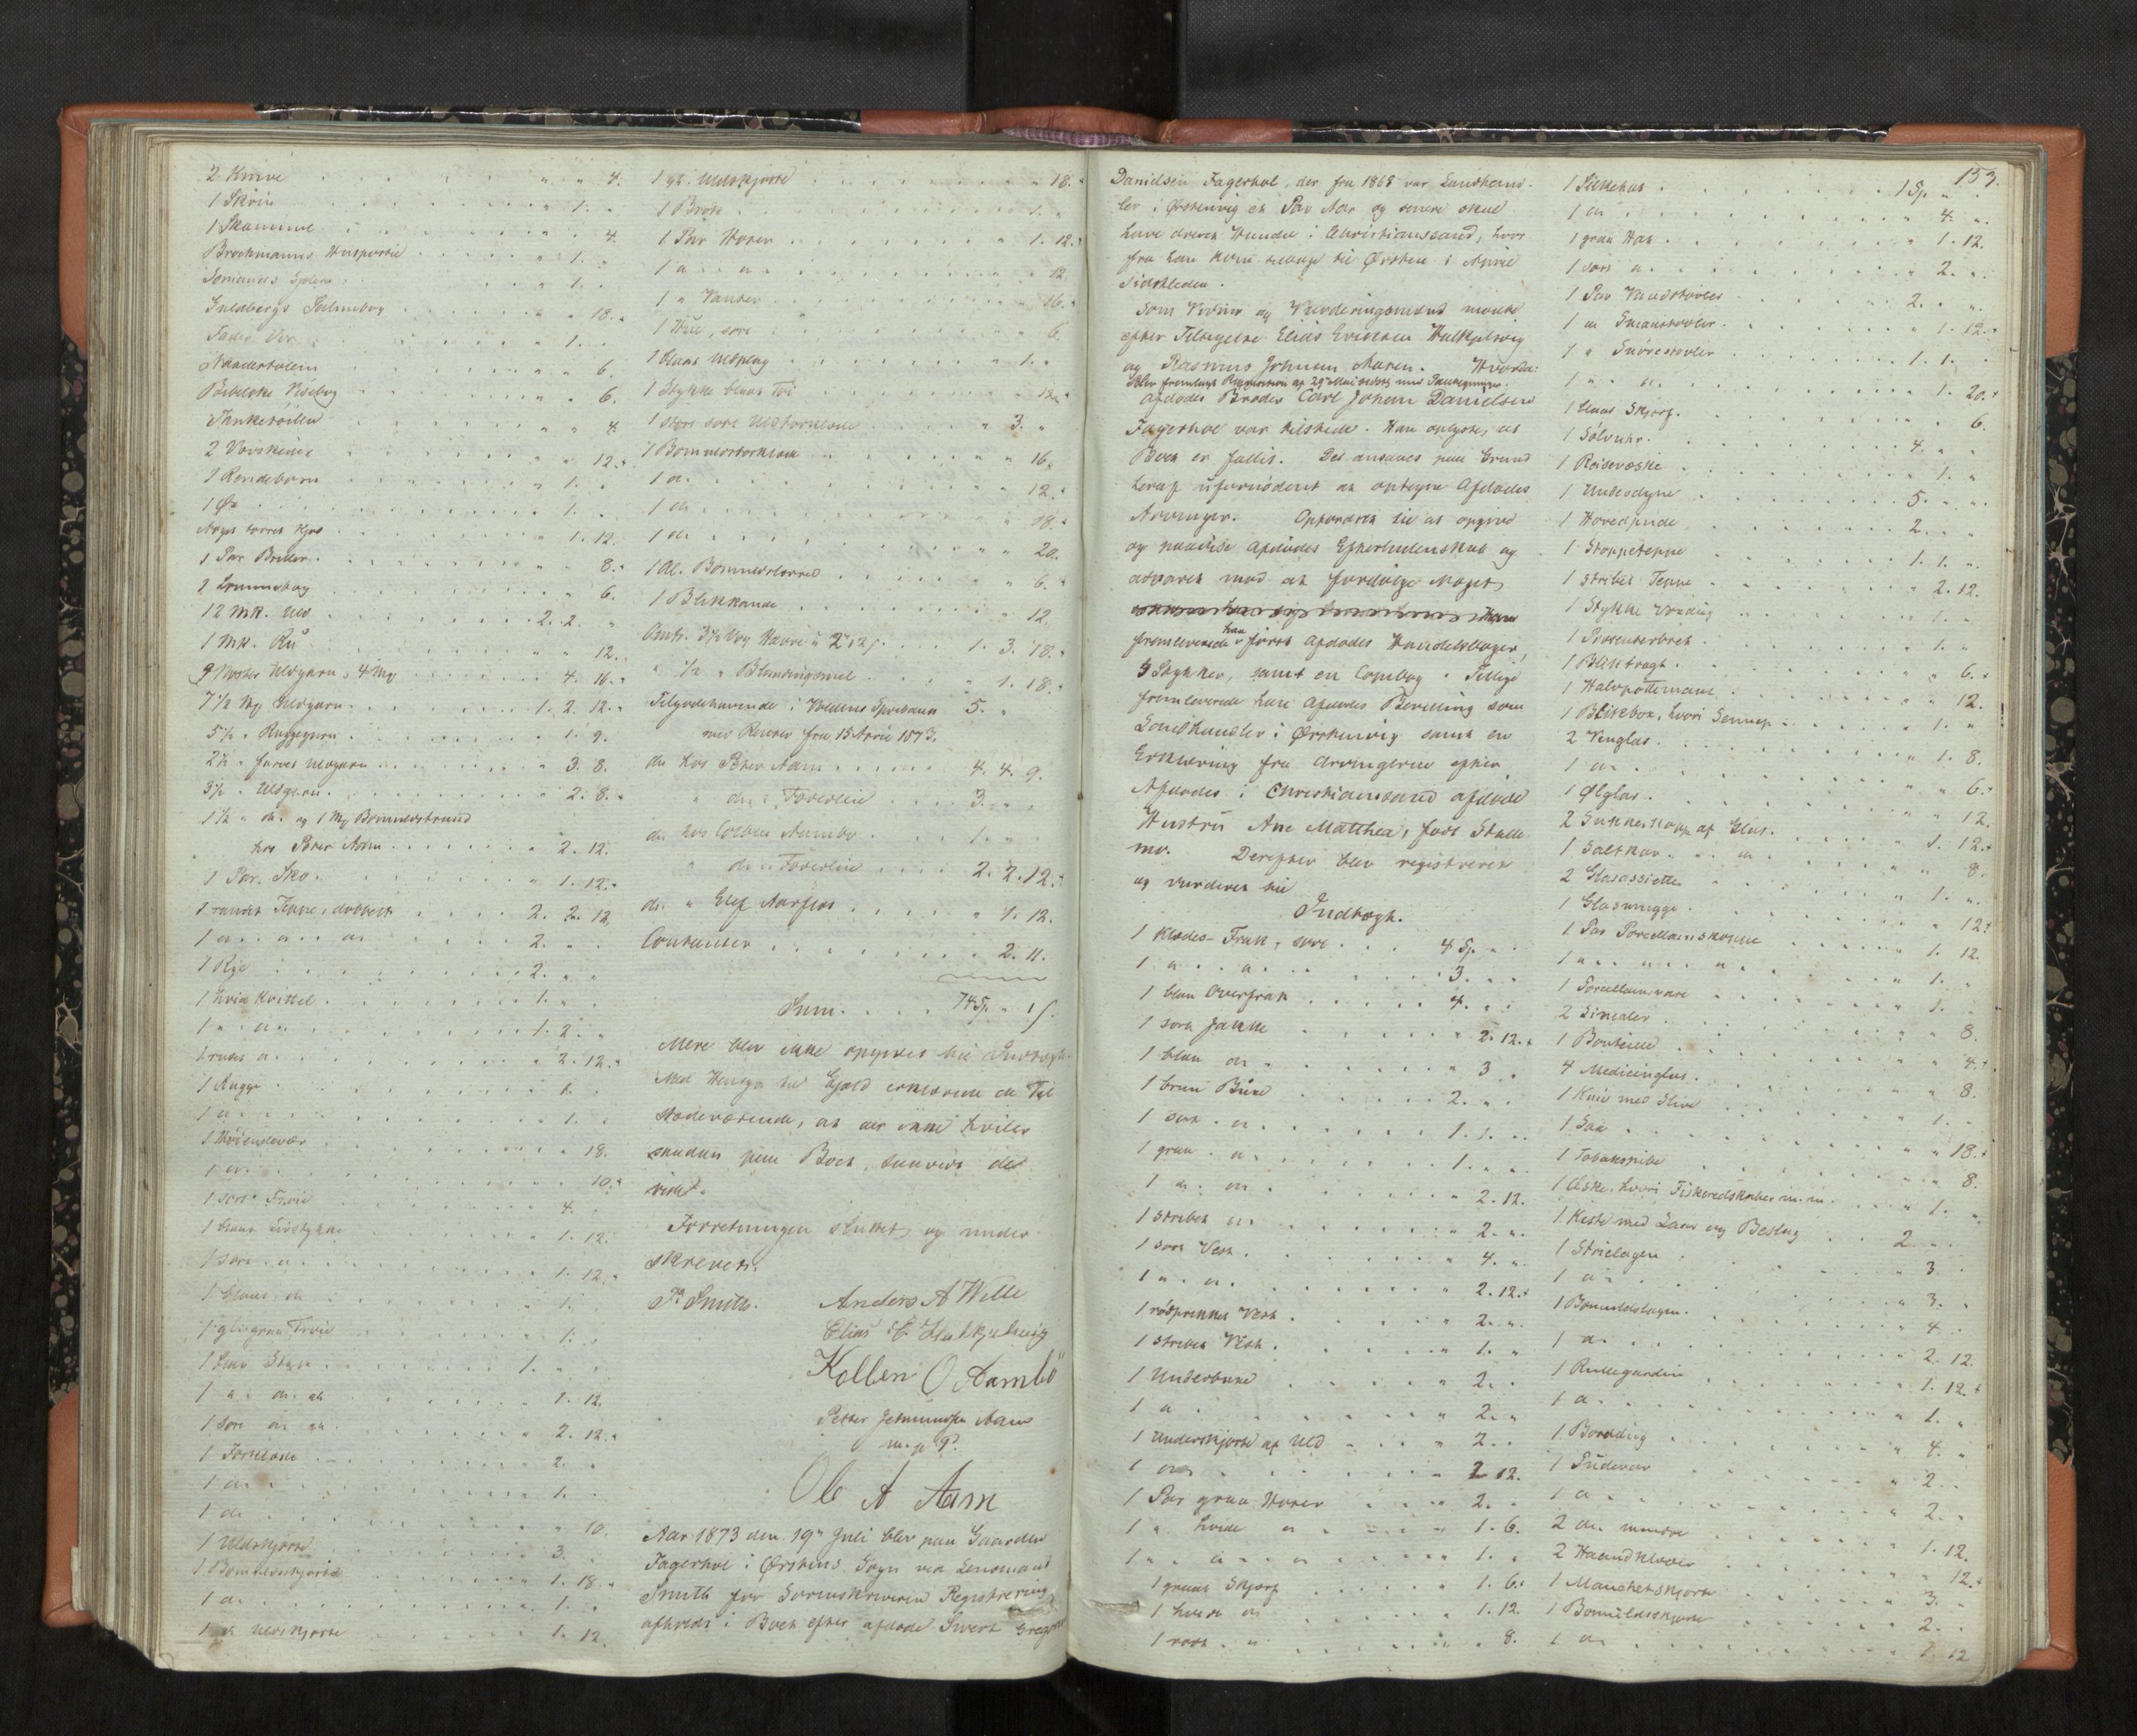 2 Knive . . . „ „ 4.
1 Skrin . . . „ 1. „
1 Skammel . . . „ „ 4.
Brochmanns Huspostil . . . „ 1. „
Guldbergs Salmebog . . . „ „ 18.
. . . „ 1. „
. . . „ „ 6.
Bibelske . . . „ „ 6.
. . . „ „ 4.
2 . . . „ „ 12.
1 . . . „ 1. „
1 Øx . . . „ 1. „
Noget tørret Kjød . . . „ 1. 12.
1 Par Briller . . . „ „ 8.
1 Lommebog . . . „ „ 6.
12 Mk. Uld . . . 2. 2. „
1 Mk. Ru . . . „ „ 12.
9 Noster Uldgarn, 4 Mk . . . „ 4. 16.
7 1/2 Mk Uldgarn . . . 1. 2. 12.
5 1/2 „ Ruggegarn . . . „ 1. 9.
2 1/2 „ farvet Uldgarn . . . „ 3. 8.
3 1/2 „ Uldgarn . . . „ 2. 8.
1 1/2 „ do. og 1 Mk Bomuldstraad
hos Peter Aam . . . „ 2. 12.
1 Par Sko . . . „ 1. 12.
1 randet Tæppe, dobbelt . . . 2. 2. 12.
1 do. do. do. . . . 2. „ „
1 Rye . . . 2. „ „
1 hvid Kvittel . . . 1. „ „
1 „ do. . . . 1. 2. „
1 rudet do. . . . „ 2. 12.
1 Rugge . . . „ 1. „
1 do. . . . „ 1. „
1 Høiendevær . . . „ „ 18.
1 do. . . . „ „ 10.
1 sort Trøie . . . „ 4. „
1 blaat Livstykke . . . „ 1. 12.
1 sort do. . . . „ 1. 12.
1 blaat do. . . . „ 1. „
1 gl. graa Trøie . . . „ 1. „
1 blaa Stak . . . 1. „ „
1 „ do. gl. . . . „ 1. 12.
1 sort do. gl. . . . „ 2. 12.
1 Forklæde . . . „ 2. „
1 do. . . . „ 1. „
1 do. . . . „ „ 10.
1 Uldskjorte . . . „ 3. „
1 Bomuldsskjorte . . . „ 1. 18.
1 do. . . . „ 1. „
1 gl. Uldskjorte . . . „ 1. 12.
1 gl. Uldskjorte . . . „ „ 18.
1 Brok . . . „ 1. „
1 Par Hoser . . . „ 1. 12.
1 do. do. . . . „ „ 12.
1 „ Vanter . . . „ „ 16.
1 Hue, sort . . . „ „ 6.
1 blaat Uldplag . . . „ 1. „
1 Stykke blaat Tøi . . . „ „ 12.
1 stort sort Uldtørklæde . . . „ 3. „
1 Bomuldstørklæde . . . „ „ 16.
1 do. . . . „ „ 12.
1 do. . . . „ „ 18.
1 do. . . . „ „ 20.
1 Al. Bomuldslærred . . . „ „ 6.
1 Blikkande . . . „ „ 12.
Omtr. 3 1/2 Vog Havre à 2 „ 12 s. . . . 1. 3. 18.
„ 1/2 „ Blandingsmel . . . „ 1. 18.
Tilgodehavende i Voldens Sparebank 5. „ „
med Renter fra 15 April 1873.
do. hos Peter Aam . . . 4. 4. 9.
„ do. „ Forerlie . . . 3. „ „
do. hos Colben Aambø . . . 1. „
„ do. „ Forerlie . . . 2. 2. 12.
do. „ Elef Aarflot . . . „ 1. 12.
Contanter . . . „ 2. 11.
Sum . . . 74 Sp. „ 1 s.
Mere blev ikke opgivet til Indtægt.
Med Hensyn til Gjæld erklærede de Til
stedeværende, at der ikke hviler
saadan paa Boet, saavidt de
vide.
Forretningen sluttet og under
skrevet.
Smith. Anders A Welle
Elias E. Halkjelsvig
Kolben O Aambö
Petter Jetmundsen Aam
m. p. P.
Ole A Aam
Aar 1873 den 19de Juli blev paa Gaarden
Fagerhol i Ørstens Sogn ved Lensmand
Smith for Sorenskriveren Registrering
afholdt i Boet efter afdøde Sivert Gregorius
Danielsen Fagerhol, der fra 1868 var Landhand-
ler i Ørstenvig et Par Aar og senere skal
have drevet Handel i Christianssand, hvor
fra han kom tilbage til Ørsten i April
sidstleden.
Som Vidner og Vurderingsmænd mødte
efter Tilsigelse Elias Evertsen Halkjelsvig
og Rasmus Johnsen Maren. Hvorda:
Blev fremlagt Requisition af 29de Mai sidstl. med Paategninger.
Afdødes Broder Carl Johan Danielsen
Fagerhol var tilstede. Han oplyste, at
Boet er fallit. Det ansaaes paa Grund
heraf ufornødent at optegne Afdødes
Arvinger. Opfordret til at opgive
og paavise Afdødes Efterladenskab og
advaret mod at fordølge Noget,
fremleverede han først Afdødes Handelsbøger,
4 Stykker, samt en Copibog. Tillige
fremleverede han Afdødes Bevilling som
Landhandler i Ørstenvig samt en
Erklæring fra Arvingerne efter
Afdødes i Christianssand afdøde
Hustru Ane Matthea, født Stalle
mo. Derefter blev registreret
og vurderet til
Indtægt.
1 Klædes-Frak, sort . . . 4 Sp. „ „
1 do. do. . . . 3. „ „
1 blaa Overfrak . . . 4. „ „
1 sort Jakke . . . „ 2. 12.
1 blaa do. . . . „ 3. „
1 brun Buxe . . . 2. „ „
1 sort do. . . . 1. 1. „
1 graa do. . . . 1. „ „
1 do. do. . . . „ 2. 12.
1 stribet do. . . . „ 2. „
1 sort Vest . . . „ 4. „
1 do. do. . . . „ 2. 12.
1 rødprikket Vest . . . „ 2. „
1 stribet Vest . . . „ 1. „
1 Underbuxe . . . „ 2. „
1 do. . . . „ 2. „
1 Underskjorte af Uld . . . „ 2. „
1 do. . . . „ 2 12.
1 Par graa Hoser . . . „ 2. „
1 „ hvide do. . . . „ 1. 6.
1 „ do. do. . . . „ 1. „
1 graat Skjærf . . . „ 1. 6.
1 hvidt do. . . . „ 1. 12.
1 rødt do. . . . „ „ 8.
153.
1 Silkehat . . . 1 Sp. „ „
1 do. . . . „ 4. „
1 graa Hat . . . „ 1. 12.
1 sort do. . . . „ 2. „
1 Par Vandstøvler . . . 2. „ „
1 do. Smaastøvler . . . „ 1. 12.
1 „ Snørestøvler . . . 1. 1. „
1 „ do. . . . „ 1. 20.
1 blaat Skjærf . . . „ „ 6.
1 Sølvuhr . . . 4. „ „
1 Reisevæske . . . „ 1. „
1 Underdyne . . . 5. „ „
1 Hovedpude . . . 2. „ „
1 Stoppetæppe . . . 1. 1. „
1 stribet Tæppe . . . „ 2. 12.
1 Stykke Vending . . . „ 1. „
1 Presenterbret . . . „ 1. „
1 Bliktragt . . . „ „ 6.
1 Halvpottemaal . . . „ „ 12.
1 Blikboks, hvori Sennep . . . „ 1. „
2 Vinglas . . . „ 1. 8.
1 do. . . . „ „ 6.
1 Ølglas . . . „ „ 12.
2 Sukkerkopp af Glas . . . „ 1. 12.
1 Saltkar „ do. . . . „ „ 8.
2 Glasassietter . . . „ 1. „
1 Glasmugge . . . „ „ 12.
1 Par Porcellainskopper . . . „ 1. 12.
1 do. do. do. . . . „ 1. „
1 Porcellainsvase . . . „ 1. „
2 Linealer . . . „ „ 8.
1 Bouteille . . . „ „ 4.
4 Medicinglas . . . „ „ 8.
1 Kniv med Slire . . . „ 1. „
1 Saa . . . „ „ 18.
1 Tobakspibe . . . „ „ 8.
1 Æske, hvori Fiskeredskaber m. m. . . . „ 1. „
1 Kiste med Laas og Beslag . . . 2. „ „
1 Strielagen . . . „ 3 „
1 do. . . . „ 3. „
1 Bomuldslagen . . . „ 4 „
1 do. . . . „ 2. 12.
1 Rullegardin . . . „ 1. 12.
1 do. . . . „ 1. „
1 Borddug . . . „ 4. „
1 Pudevar . . . „ 2. „
1 do. . . . „ 2. „
2 do. mindre . . . „ 1. 12.
2 Haandklæder . . . „ „ 12.
1 Manchetskjorte . . . „ 3. „
1 Bomuldsskjorte . . . „ 2. „
1 do. . . . „ 1. 12